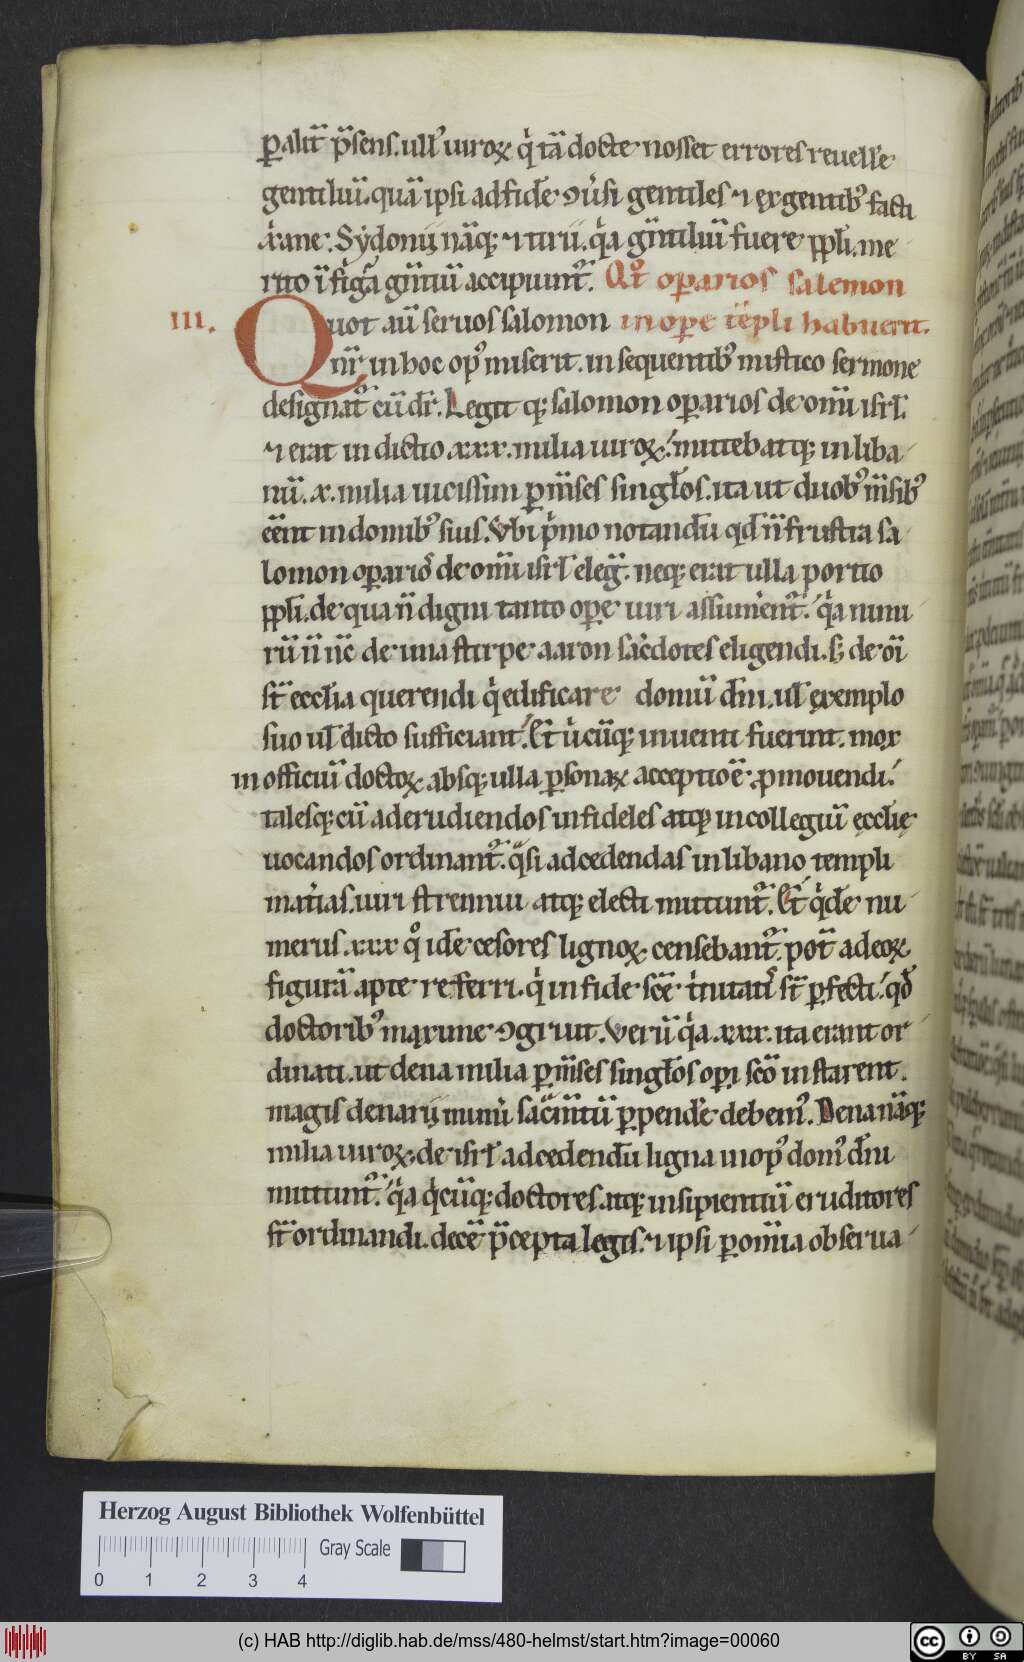 ꝑalit̄ p̄sens. ull' uiroꝝ q̇ tā docte nosset errores reuell'e
gentiliū. quā ipsi ad fidē ꝯu'si gentiles ⁊ ex gentib' facti
x̄ane. Sydonij nāq; ⁊ tirii. q̇a gn̄tiliū fuere ppl̄i. me
rito ī fig̾a gn̄tiū accipiunt᷑. Qt̄ oꝑarios salemon
III. Quot aū seruos salomon in opꝰe tēpli habuerit.
qr̄ in hoc op' miserit. in sequentib' mistico sermone
designat᷑ cū dr̄. Legit q; salomon oꝑarios de om̄i isrl̄.
⁊ erat indictio xxx. milia uiroꝝ. mittebatq; in liba
nū. x. milia uicissim ꝑ m̄ses singl̄os. ita ut duob' m̄sib'
eēnt in domib' suis. Vbi ṗmo notandū qd̄ n̄ frustra sa
lomon oꝑarios de om̄i isrl̄ eleg̅. neq; erat ulla portio
ppl̄i. de qua n̄ digni tanto oꝑe uiri assum'ent᷑. q̇a nimi
rū n̄ nc̄ de una stirpe aaron sac'dotes eligendi. s; de oī
st̄ eccl̄ia querendi q̇ edificare domū dn̄i. ul̄ exemplo
suo ul̄ dicto sufficiant. Et u̇cūq; inuenti fuerint. mox
in officiū doctoꝝ absq; ulla ꝑsonaꝝ acceptiōe ꝓmouendi.
talesq; cū ad erudiendos infideles atq; in collegiū eccl̄ie
uocandos ordinant᷑. q̄si ad cedendas in libano templi
mat'ias. uiri strennui atq; electi mittunt᷑. Et q̇dē nu
merus. xxx q° idē cesores lignoꝝ censebant᷑. pot̄ ad eoꝝ
figurā apte referri. q̇ in fide sc̄e t̓nitatis st̄ ꝑfecti. qđ
doctorib' maxime ꝯgruit. Verū q̇a. xxx. ita erant or
dinati. ut dena milia ꝑ m̄ses singl̄os opi sc̄o instarent.
magis denarij num'i sac̄m̄tū ꝑpend'e debem'. Dena nāq;
milia uiroꝝ. de isrl̄ ad cedendū ligna in op' dom' dn̄i
mittunt᷑. q̇a q̇cūq; doctores. atq; insipientiū eruditores
st̄ ordinandi. decē p̄cepta legis. ⁊ ipsi ꝑ om̄ia obserua
Herzog August Bibliothek Wolfenbüttel
Gray Scale
0 1 2 3 4
(c) HAB http://diglib.hab.de/mss/480-helmst/start.htm?image=00060
cc BY SA